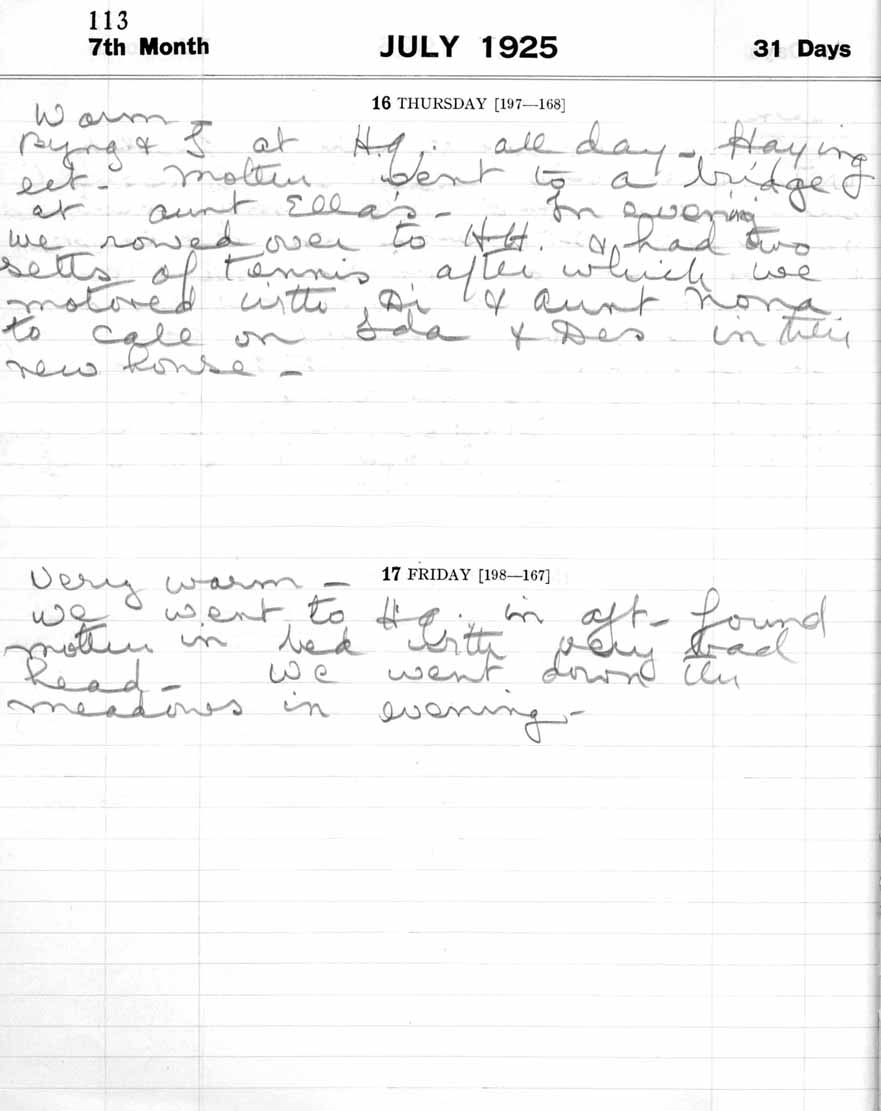 113
7th Month JULY 1925 31 Days
16 THURSDAY [197—168]
Warm -
Byng & I at H.g. all day - Haying
ect - Mother went to a bridge
at aunt Ella's - In evening
we rowed over to H.H. & had two
setts of tennis after which we
motored with Di & aunt Nona
to call on Ida & Des in their
new house -
17 FRIDAY [198—167]
Very warm -
we went to H.g. in aft - found
mother in bed with very bad
head - We went down the
meadows in evening -